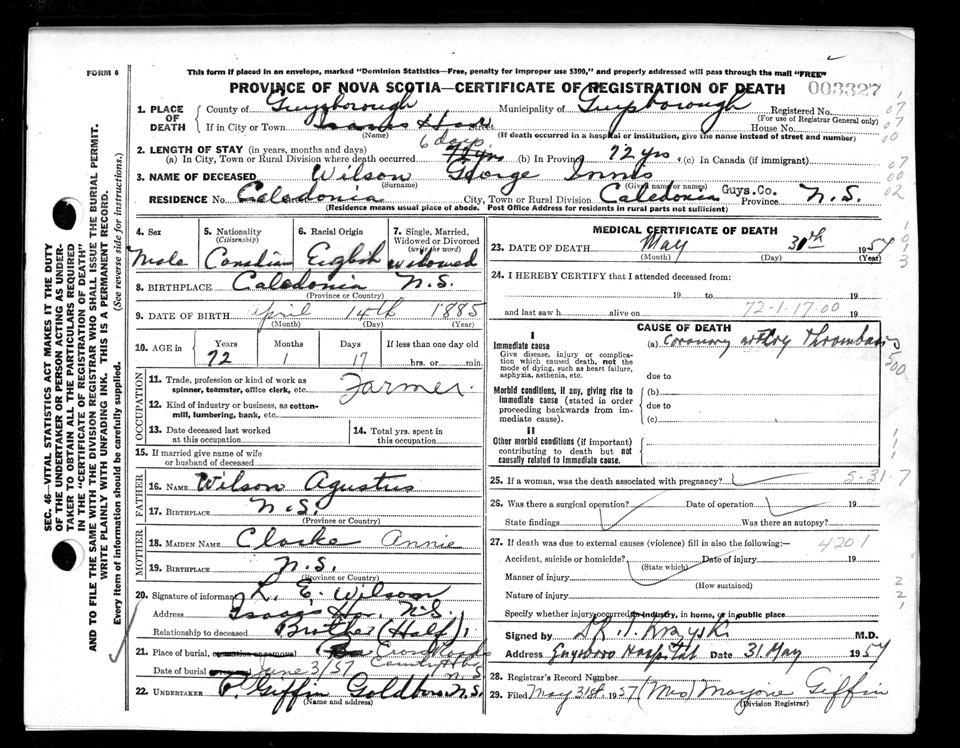 FORM 6
This form if placed in an envelope, marked "Dominion Statistics—Free, penalty for improper use $300," and properly addressed will pass through the mail "FREE"
PROVINCE OF NOVA SCOTIA—CERTIFICATE OF REGISTRATION OF DEATH 003327
1. PLACE OF DEATH
County of Guysborough Municipality of Guysborough Registered No.
(For use of Registrar General only)
If in City or Town Isaacs Street House No.
(Name) (If death occurred in a hospital or institution, give the name instead of street and number)
2. LENGTH OF STAY (in years, months and days) 6 days
(a) In City, Town or Rural Division where death occurred 72 yrs (b) In Province 72 yrs (c) In Canada (if immigrant)
3. NAME OF DECEASED Wilson George Innis
(Surname) (Given name or names)
RESIDENCE No. Caledonia City, Town or Rural Division Caledonia Guys. Co. Province N.S.
(Residence means usual place of abode. Post Office Address for residents in rural parts not sufficient)
4. Sex Male
5. Nationality (Citizenship) Canadian
6. Racial Origin English
7. Single, Married, Widowed or Divorced (write the word) Widowed
8. BIRTHPLACE Caledonia N.S.
(Province or Country)
9. DATE OF BIRTH April 14th 1885
(Month) (Day) (Year)
10. AGE in Years 72 Months 1 Days 17 If less than one day old hrs. or min.
OCCUPATION
11. Trade, profession or kind of work as spinner, teamster, office clerk, etc. Farmer
12. Kind of industry or business, as cotton-mill, lumbering, bank, etc.
13. Date deceased last worked at this occupation
14. Total yrs. spent in this occupation
15. If married give name of wife or husband of deceased
FATHER
16. NAME Wilson Agustus
17. BIRTHPLACE N.S.
(Province or Country)
MOTHER
18. MAIDEN NAME Clarke Annie
19. BIRTHPLACE N.S.
(Province or Country)
20. Signature of informant L. E. Wilson
Address Isaacs Har. N.S.
Relationship to deceased Brother (Half)
21. Place of burial, cremation or removal Cross Roads
Date of burial June 3/57 Country Hbr N.S.
22. UNDERTAKER Giffin Goldboro N.S.
(Name and address)
MEDICAL CERTIFICATE OF DEATH
23. DATE OF DEATH May 31th 1957
(Month) (Day) (Year)
24. I HEREBY CERTIFY that I attended deceased from:
19 to 19
and last saw h alive on 19
72-1-17-00
CAUSE OF DEATH
I
Immediate cause
Give disease, injury or complication which caused death, not the mode of dying, such as heart failure, asphyxia, asthenia, etc.
(a) Coronary artery Thrombosis
due to
Morbid conditions, if any, giving rise to immediate cause (stated in order proceeding backwards from immediate cause).
(b)
due to
(c)
II
Other morbid conditions (if important) contributing to death but not causally related to immediate cause.
25. If a woman, was the death associated with pregnancy? 5-31-7
26. Was there a surgical operation? Date of operation 19
State findings Was there an autopsy?
27. If death was due to external causes (violence) fill in also the following:— 4201
Accident, suicide or homicide? Date of injury 19
(State which)
Manner of injury
(How sustained)
Nature of injury
Specify whether injury occurred in industry, in home, or in public place
Signed by M.D.
Address Guysboro Hospital Date 31 May 1957
28. Registrar's Record Number
29. Filed May 31st 1957 (Mrs) Marjorie Giffin
(Division Registrar)
SEC. 46—VITAL STATISTICS ACT MAKES IT THE DUTY OF THE UNDERTAKER OR PERSON ACTING AS UNDERTAKER TO OBTAIN ALL THE PARTICULARS REQUIRED IN THE "CERTIFICATE OF REGISTRATION OF DEATH" AND TO FILE THE SAME WITH THE DIVISION REGISTRAR WHO SHALL ISSUE THE BURIAL PERMIT.
WRITE PLAINLY WITH UNFADING INK. THIS IS A PERMANENT RECORD.
Every item of information should be carefully supplied. (See reverse side for instructions.)